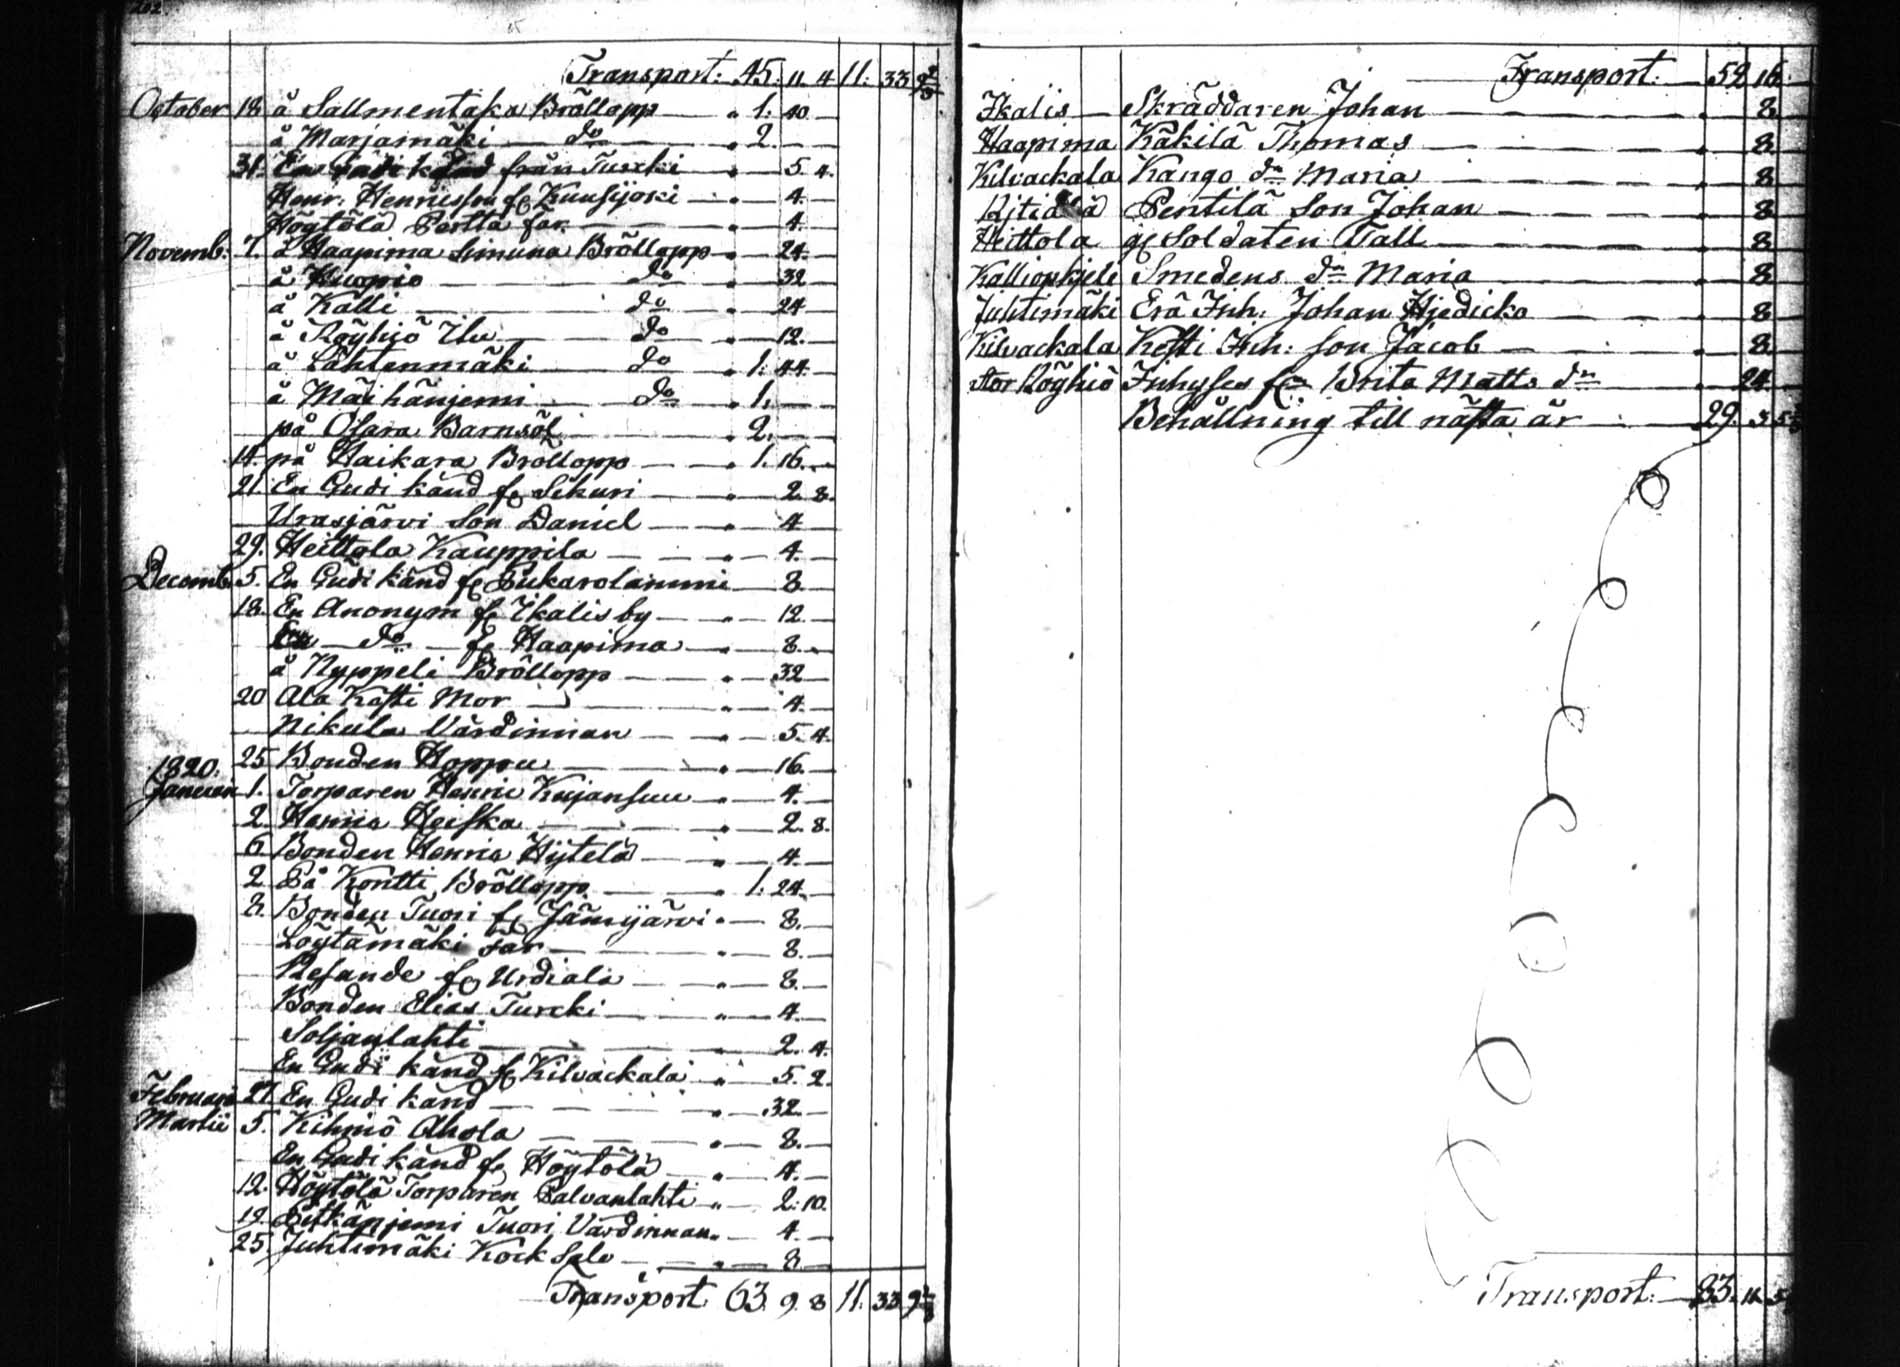 202.
Transport: 45. 11. 4 11. 33 9 2/3
October 18 å Sallmentaka Bröllopp 1. 40
å Marjamäki do 2.
31. från Turcki 5. 4.
Henr. Henricsson fr. Kuusijoki 4.
Höytölä Pertta far 4.
Novemb. 7. å Haapima Simuna Bröllopp 24.
å Kuopio do 32
å Kalli do 24
å Röyhiö do 12.
å Lähtenmäki do 1. 44.
å do 1.
på Osara Barnsöl 2.
14. på Haikara Bröllopp 1. 16.
21. En Gudi känd fr. Sikuri 2. 8.
Urasjärvi Son Daniel 4
29. Heittola Kauppila 4.
Decemb. 5. En Gudi känd fr. 8
18. En Anonym fr. Ikalis by 12
En do fr. Haapima 8.
å Nyppeli Bröllopp 32
20 Ala Kästi Mor 4.
Nikula Värdinnan 5. 4.
25 Bonden Hoppu 16.
1820.
Januari 1. Torparen Henric Kuijansuu 4.
2. Heiska 2. 8.
6 Bonden Henric Hijtelä 4.
2 På Kontti Bröllopp 1. 24.
8. Bonden Tuori fr. Jämijärvi 8.
Löytämäki Far 8.
Resande fr. Urdiala 8.
Bonden Elias Turcki 4
Soljanlahti 2. 4.
En Gudi känd fr. Kilvackala 5. 2.
Februari 27 En Gudi känd 32.
Martii 5. Kihniö Ahola 8.
En Gudi känd fr. Höytölä 4.
12. Höytölä Torparen Salvanlahti 2. 10.
19. Sitkänjemi Tuori Värdinnan 4.
25 Juhtimäki Kock 8
Transport 63. 9. 8 11. 33. 9 2/3
Transport: 52 16.
Ikalis Skräddaren Johan 8
Haapima Käkilä Thomas 8
Kilvackala Kango dr. Maria 8
Pentilä Son Johan 8
Heittola gl Soldaten Tall 8
Kallionkjeli Smedens dr. Maria 8
Juhtimäki Erä Inh. Johan Hjedicko 8
Kilvackala Kesti Inh: son Jacob 8
Stor Röyhiö Inhyses Brita Matts dr 24
Behållning till nästa år 29. 3 5
Transport: 83. 11. 5